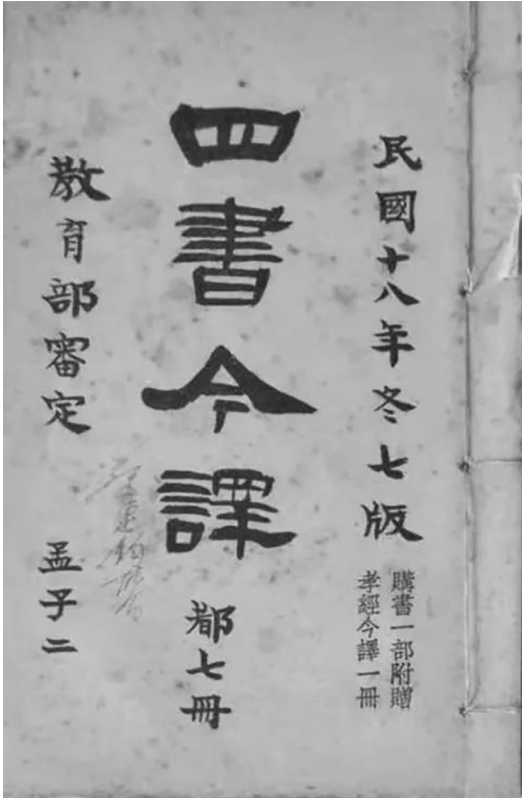 民國十八年冬七版
購書一部附贈
孝經今譯一冊
四書今譯
都七冊
教育部審定
孟子二